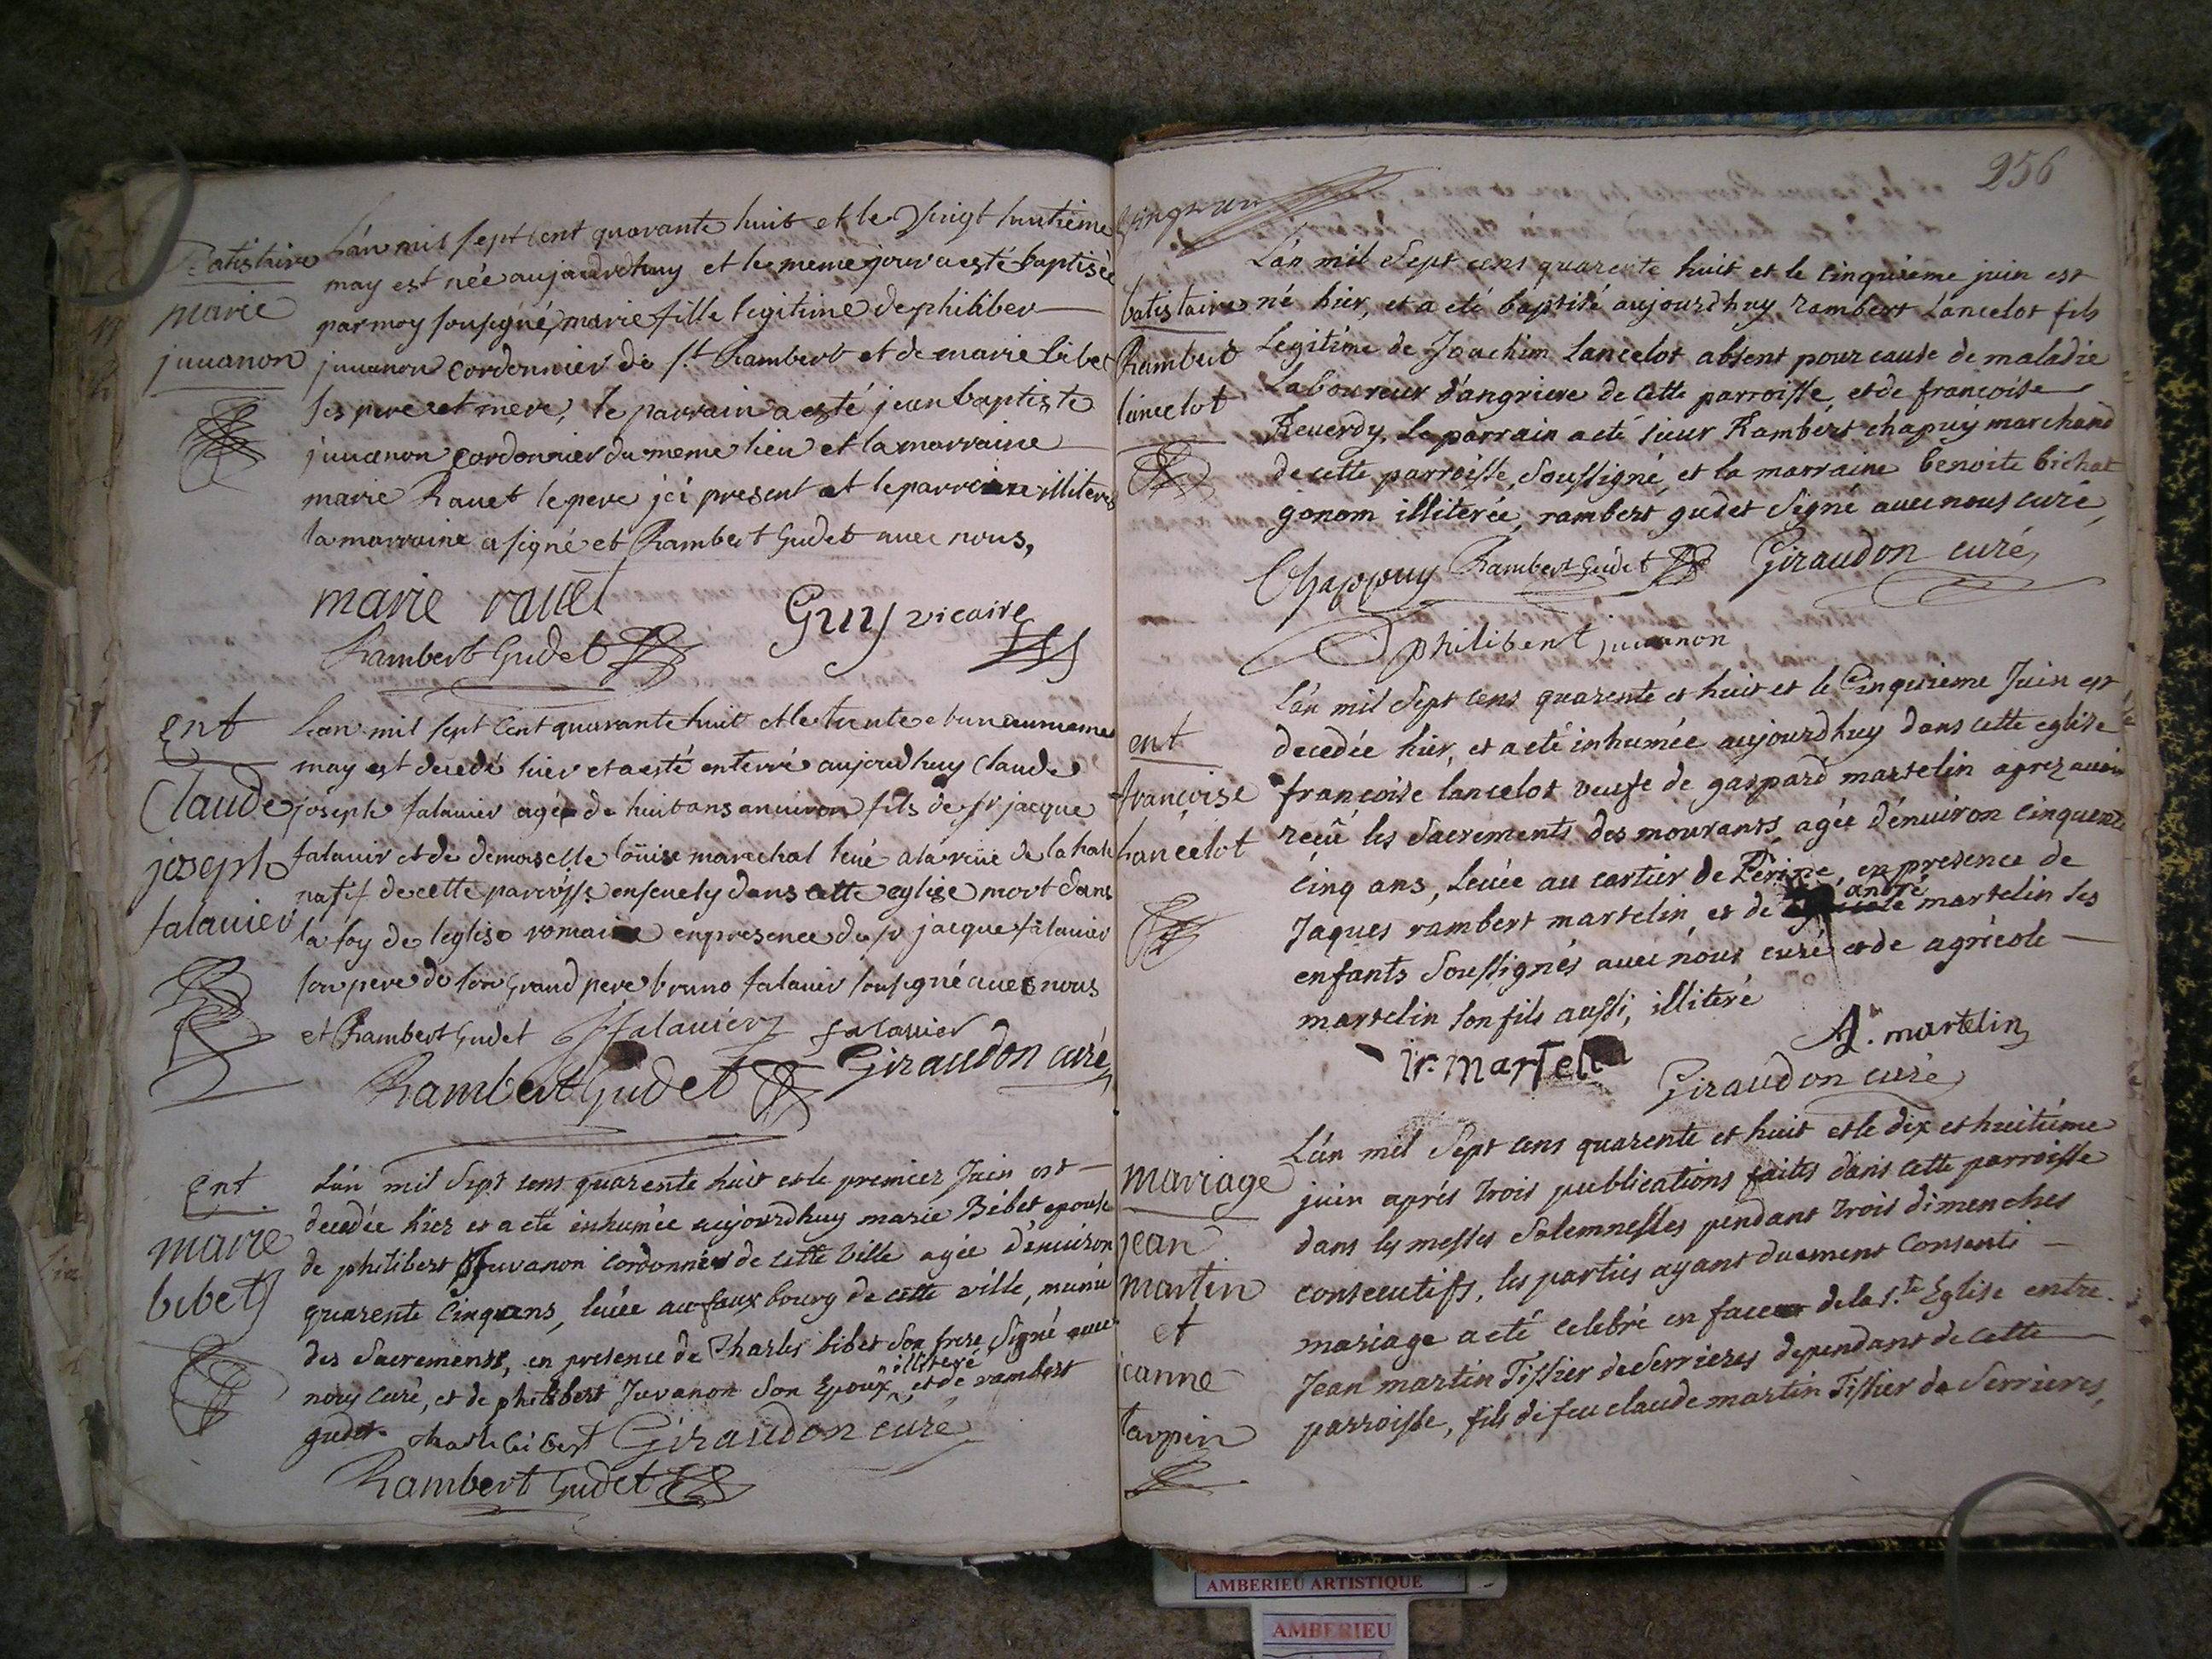 Batistaire
marie
juuanon
L'an mil sept cent quarante huit et le vingt huitieme
may est neé aujourdhuy et le meme jour a esté baptiseé
par moy sousigné marie fille legitime de philiber
juuanon cordonnier de st. Rambert et de marie bibet
ses pere et mere, le parrain a esté jean baptiste
juuanon cordonnier du meme lieu et la marraine
marie Rauet le pere jci present et le parraine illiteres
la marraine a signé et Rambert Gudet auec nous,
marie rauet
Guy vicaire
Rambert Gudet
Ent
Claude
joseph
falauier
L'an mil sept Cent quarante huit et le trente et un eumeme
may est decedé hier et a esté enterré aujoudhuy Claude
joseph falauier agé de huit ans anuiron fils de sr jacque
falauir et de demoiselle loüise marechal leué a la rüe de la hale
natif de cette parroisse enseuely dans cette eglise mort dans
la foy de leglise romaine en presence du sr jacque falauier
son pere de son Grand pere bruno falauier sousigné auec nous
et Rambert Gudet falauier falauier
Rambert Gudet Giraudon curé
Ent
marie
bibet
L'an mil Sept cens quarente huit et le premier Juin est
decedée hier et a eté inhumée aujourdhuy marie Bibet epouse
de philibert Juvanon cordonnier de cette ville agée d'enuiron
quarente Cinq ans, leuée au faux bourg de cette ville, munie
des Sacrements, en presence de Charles bibet Son frere Signé auec
nous curé, et de philibert Juvanon Son Epoux illiteré, et de rambert
gudet. charle bibert Giraudon curé
Rambert Gudet
256
batistaire
Rambert
lancelot
L'an mil Sept cens quarente huit et le cinquieme juin est
né hier, et a eté baptisé aujourdhuy rambert Lancelot fils
Legitime de Joachim Lancelot absent pour cause de maladie
Laboureur d'angriere de cette parroisse, et de francoise
Reuerdy, le parrain a eté sieur Rambert chapuy marchand
de cette parroisse, Soussigné, et la marraine benoite bichat
gonom illiterée, rambert gudet Signé auec nous curé,
Chappuy Rambert Gudet Giraudon curé
philibent juuanon
ent
françoise
Lancelot
L'an mil Sept cens quarente et huit et le Cinquieme Juin est
decedée hier, et a eté inhumée aujourdhuy dans cette eglise
francoise lancelot veufe de gaspard martelin aprez auoir
receû les Sacrements des mourants, agée d'enuiron cinquente
cinq ans, leuée au cartier de Lérine, en presence de
Jaques rambert martelin, et de andré martelin ses
enfants Soussignés auec nous curé et de agricole
martelin son fils aussi, illiteré
A. martelin
Ir. martel
Giraudon curé
Mariage
jean
martin
et
jeanne
tarpin
L'an mil Sept cens quarente et huit et le dix et huitiéme
juin aprés trois publications faites dans cette parroisse
dans les messes Solemnelles pendant trois dimenches
consecutifs, les parties ayant duement consenti
mariage a eté celebré en face de la s.te Eglise entre
Jean martin Tissier de Serrieres dependant de cette
parroisse, fils de feu claude martin Tissier de Serrieres,
AMBERIEU ARTISTIQUE
AMBERIEU